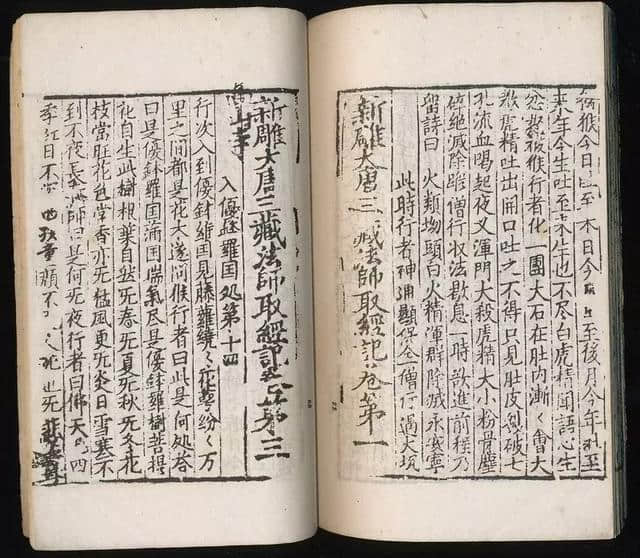 猴今日吐至 日今 吐至後月今年吐至
來年今生吐至來生也不尽白虎精聞語心生
忿怒被猴行者化一團大石在肚內漸〻會大
教虎精吐出開口吐之不得只見肚皮裂破七
孔流血喝起夜叉渾門大殺虎精大小粉骨塵
碎絶滅除蹤僧行收法歇息一時欲進前程乃
留詩曰 火類坳頭白火精渾群除滅永安寧
此時行者神通顯保全僧行過大坑
新雕大唐三藏法師取經記卷第一
新雕大唐三藏法師取經記卷第三
高山寺
入優鉢羅国处第十四
行次入到優鉢羅国見藤蘿繞〻花萼紛〻万
里之間都是花木遂問猴行者曰此是何処荅
曰是優鉢羅国滿国瑞氣尽是優鉢羅樹菩提
花自生此樹根葉自然无春无夏无秋无冬花
枝常旺花色常香亦无猛風更无炎日雪寒不
到不夜長春師曰是何无夜行者曰佛天 四
季紅日不 西 顏不 死也无悲